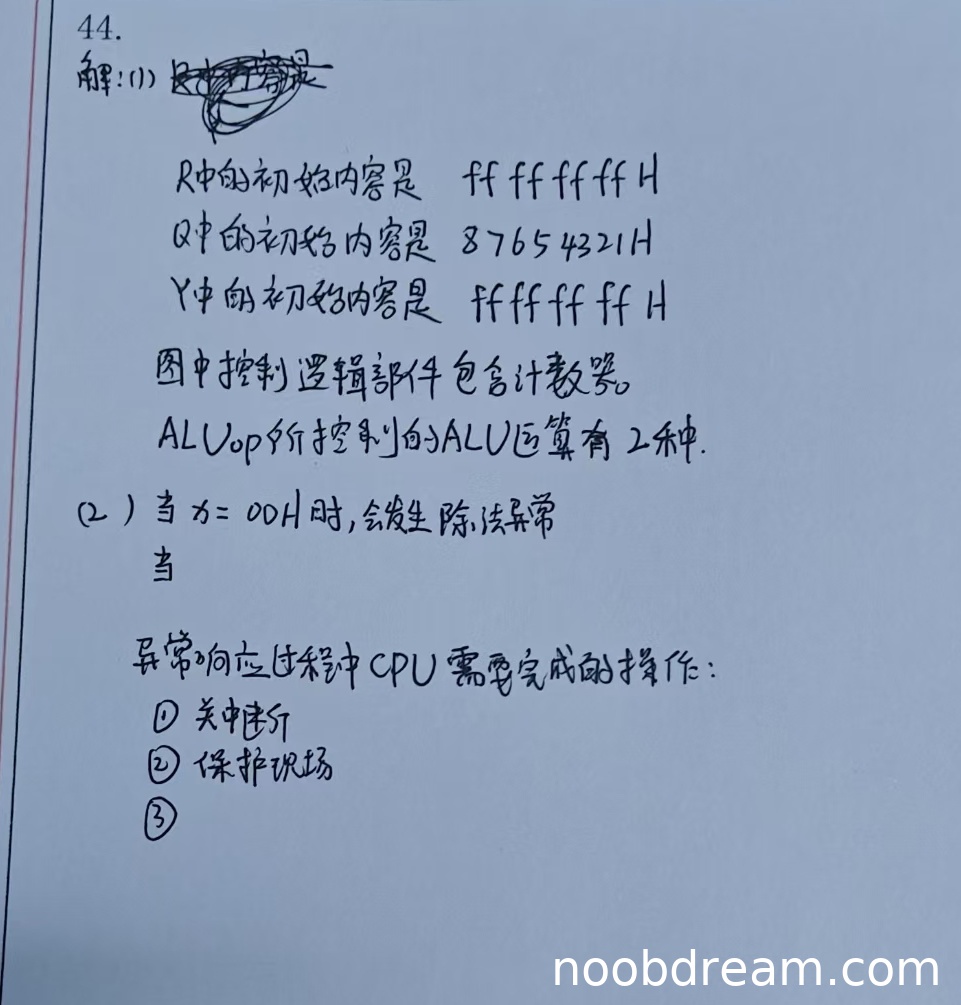 44.
解:(1)
R中的初始内容是 ffffffffH
Q中的初始内容是 87654321H
Y中的初始内容是 ffffffffH
图中控制逻辑部件包含计数器。
ALUop所控制的ALU运算有2种.
(2) 当x=00H时,会发生除法异常
当
异常响应过程中CPU需要完成的操作:
① 关中断
② 保护现场
③
noobdream.com